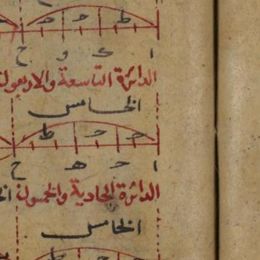 ط ح ح
ا ح و ح
الدائرة التاسعة والاربعون
الخامس
ط ح ح
ا ح ه ح
الدائرة الحادية والخمسون
الخامس